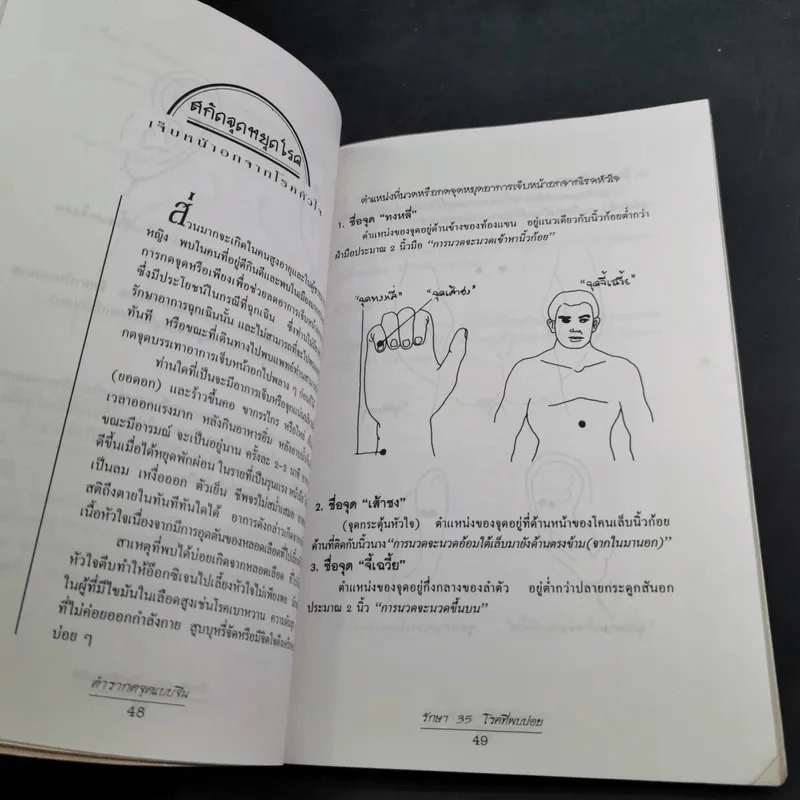 สกัดจุดหยุดโรค
เจ็บหน้าอกจากโรคหัวใจ
ส่วนมากจะเกิดในคนสูงอายุและในผู้ชาย
หญิง พบในคนที่อยู่ดีกินดีและพบในเมือง
การกดจุดหรือเพียงเพื่อช่วยลดอาการเจ็บหน้าอก
ซึ่งมีประโยชน์ในกรณีที่ฉุกเฉิน ซึ่งท่านไม่มี
รักษาอาการฉุกเฉินนั้น และไม่สามารถที่จะไปพบ
ทันที หรือขณะที่เดินทางไปพบแพทย์ท่านจะ
กดจุดบรรเทาอาการเจ็บหน้าอกไปพลาง ๆ ก่อน
ท่านใดที่เป็นจะมีอาการเจ็บหรือจุกแน่น
(ยอดอก) และร้าวขึ้นคอ ขากรรไกร หรือไหล่
เวลาออกแรงมาก หลังกินอาหารอิ่ม หลังอาบน้ำ
ขณะมีอารมณ์ จะเป็นอยู่นาน ครั้งละ 2-3 นาที
ดีขึ้นเมื่อได้หยุดพักผ่อน ในรายที่เป็นรุนแรง
เป็นลม เหงื่อออก ตัวเย็น ชีพจรไม่สม่ำเสมอ
สติถึงตายในทันทีทันใดได้ อาการดังกล่าวเกิดจาก
เนื้อหัวใจเนื่องจากมีการอุดตันของหลอดเลือดที่ไปเลี้ยง
สาเหตุที่พบได้บ่อยเกิดจากหลอดเลือด
หัวใจตีบทำให้อ็อกซิเจนไปเลี้ยงหัวใจไม่เพียงพอ
ในผู้ที่มีไขมันในเลือดสูงเช่นโรคเบาหวาน ความดัน
ที่ไม่ค่อยออกกำลังกาย สูบบุหรี่จัดหรือมีจิตใจ
บ่อย ๆ
ตำรากดจุดแบบจีน
48
ตำแหน่งที่นวดหรือกดจุดหยุดอาการเจ็บหน้าอกจากโรคหัวใจ
1. ชื่อจุด “ทงหลี่”
ตำแหน่งของจุดอยู่ด้านข้างของท้องแขน อยู่แนวเดียวกับนิ้วก้อยต่ำกว่า
ฝ่ามือประมาณ 2 นิ้วมือ “การนวดจะนวดเข้าหานิ้วก้อย”
“จุดทงหลี่” “จุดเส้าชง” “จุดจี้เฉวี้ย”
2. ชื่อจุด “เส้าชง”
(จุดกระตุ้นหัวใจ) ตำแหน่งของจุดอยู่ที่ด้านหน้าของโคนเล็บนิ้วก้อย
ด้านที่ติดกับนิ้วนาง “การนวดจะนวดอ้อมใต้เล็บมายังด้านตรงข้าม (จากในมานอก)”
3. ชื่อจุด “จี้เฉวี้ย”
ตำแหน่งของจุดอยู่กึ่งกลางของลำตัว อยู่ต่ำกว่าปลายกระดูกสันอก
ประมาณ 2 นิ้ว “การนวดจะนวดขึ้นบน”
รักษา 35 โรคที่พบบ่อย
49